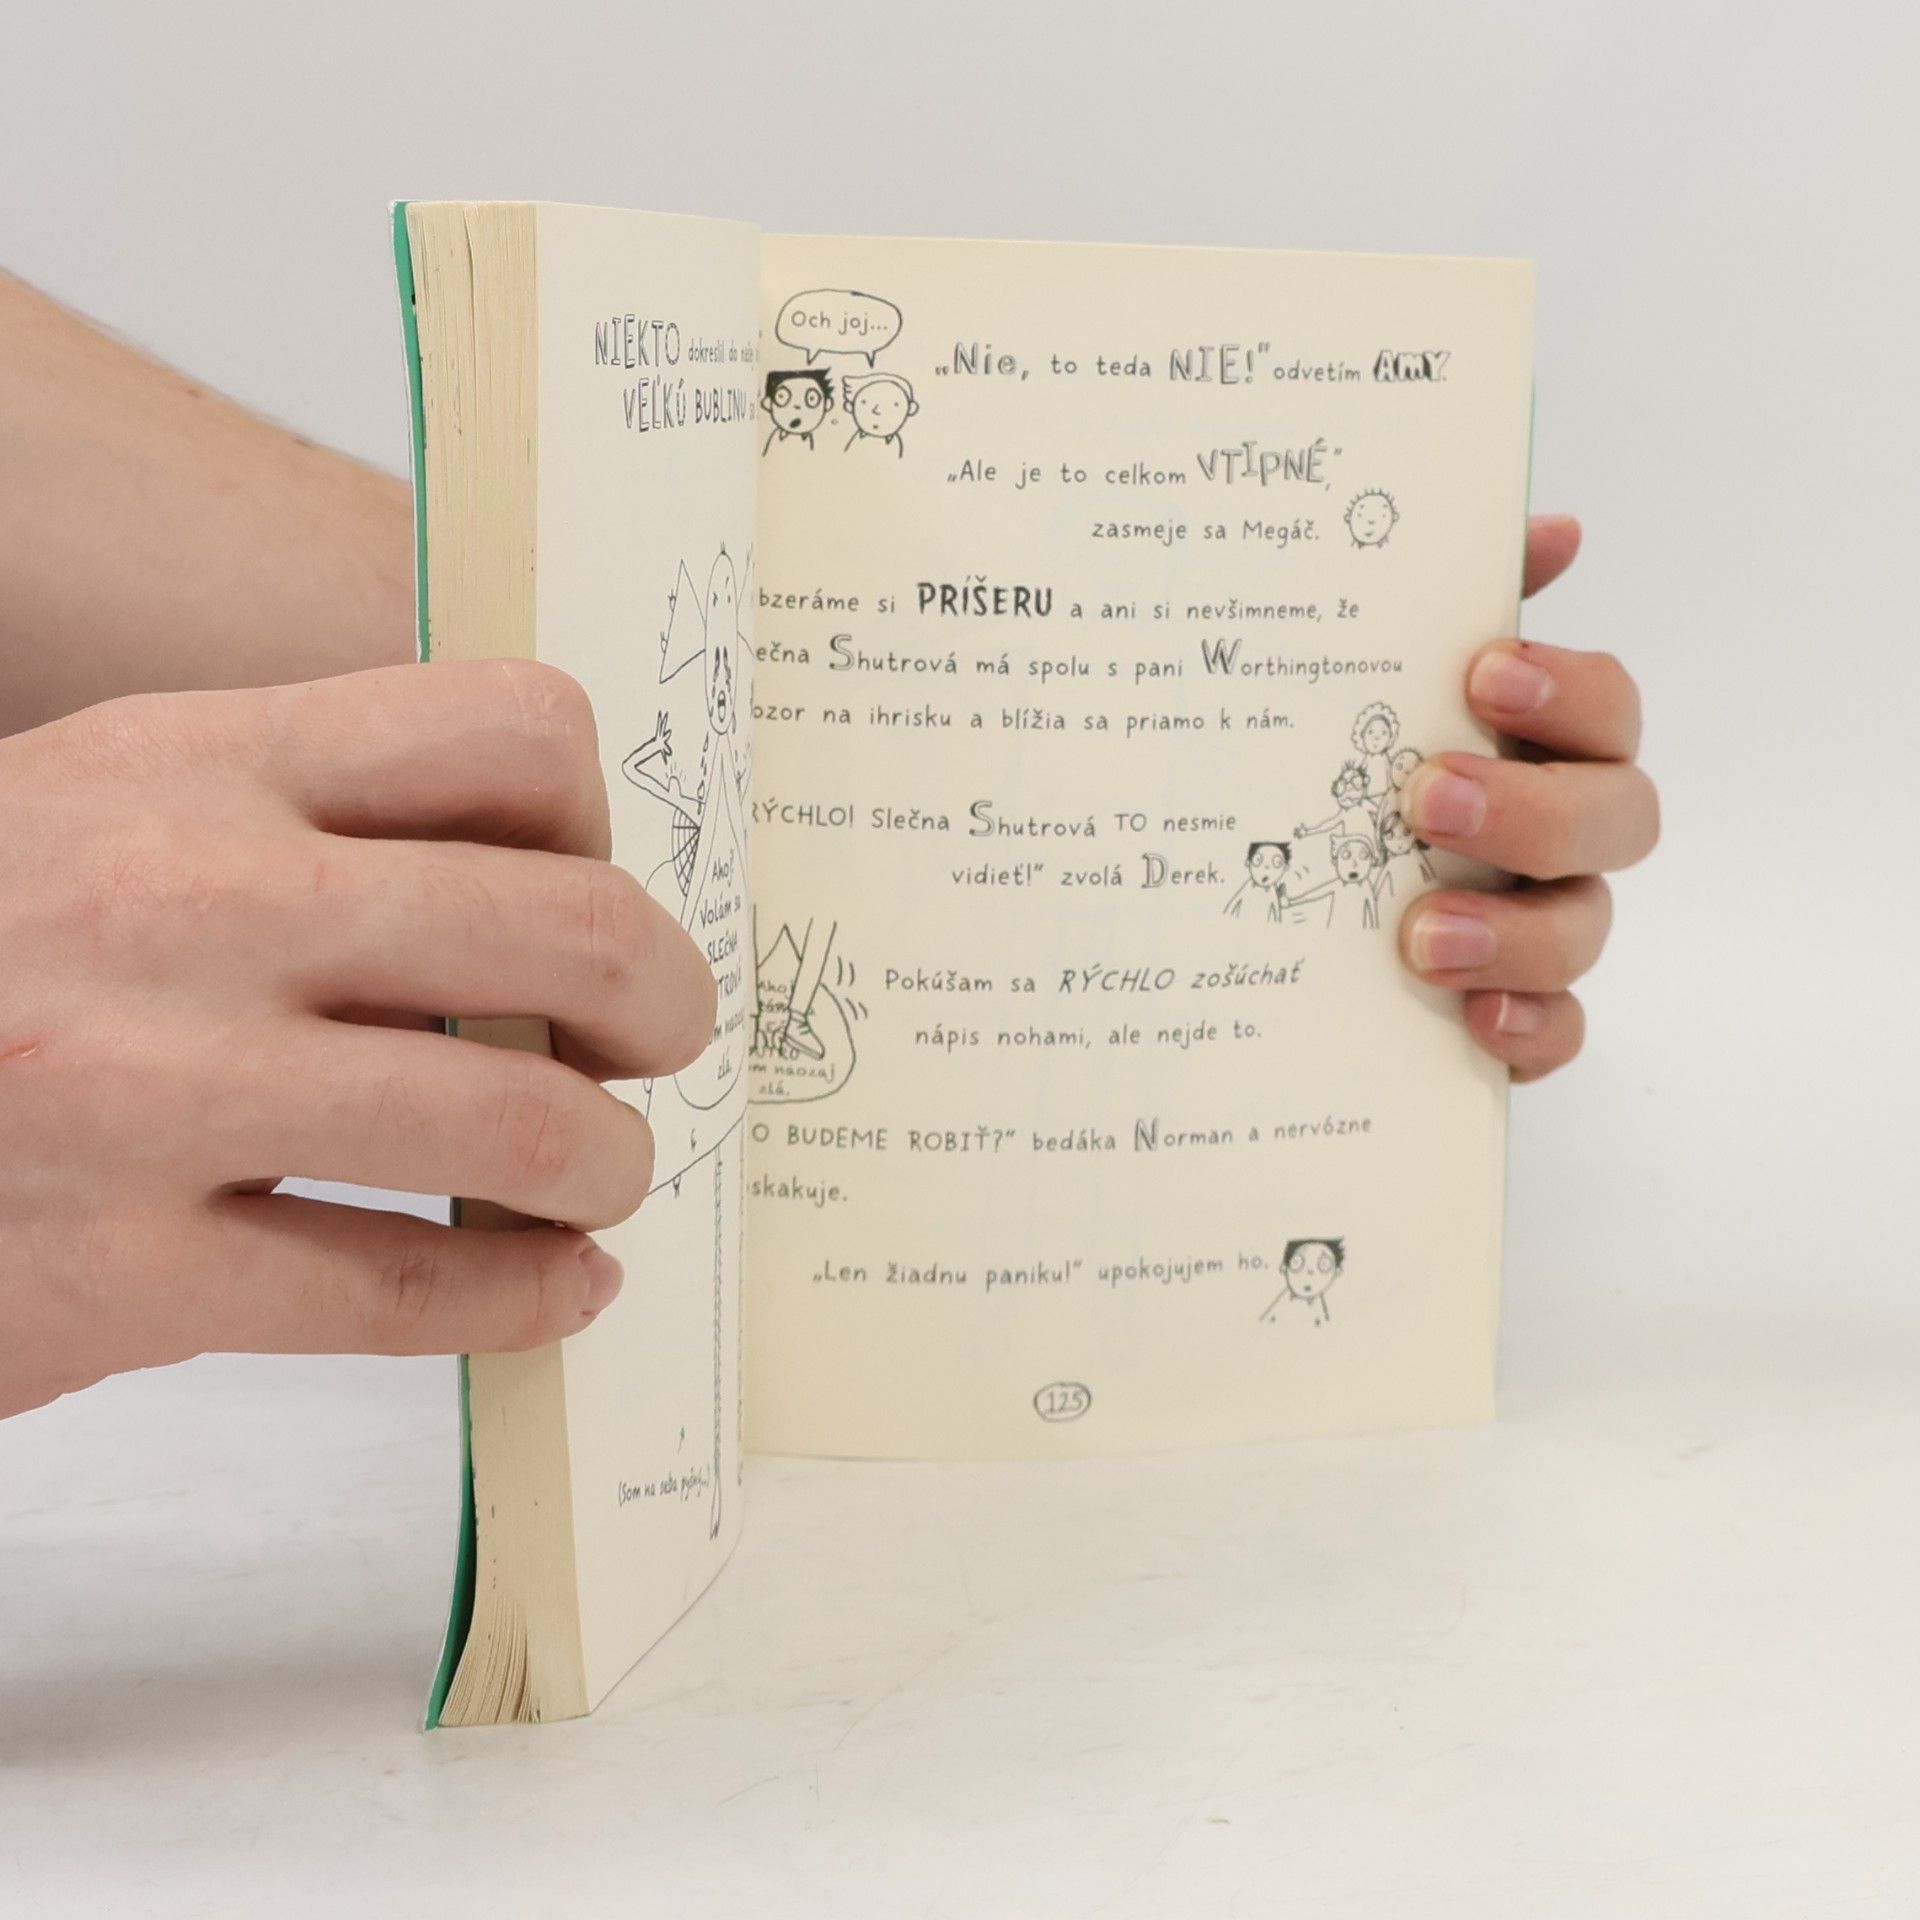 NIEKTO dokreslil do
VEĽKÚ BUBLINU
Ahoj.
Volám sa
SLEČNA
zlá.
(Som na seba pyšný...)
Och joj...
„Nie, to teda NIE!" odvetím AMY.
„Ale je to celkom VTIPNÉ,"
zasmeje sa Megáč.
bzeráme si PRÍŠERU a ani si nevšimneme, že
ečna Shutrová má spolu s pani Worthingtonovou
ozor na ihrisku a blížia sa priamo k nám.
RÝCHLO! Slečna Shutrová TO nesmie
vidieť!" zvolá Derek.
Ahoj
m naozaj
zlá.
Pokúšam sa RÝCHLO zošúchať
nápis nohami, ale nejde to.
O BUDEME ROBIŤ?" bedáka Norman a nervózne
skakuje.
„Len žiadnu paniku!" upokojujem ho.
125